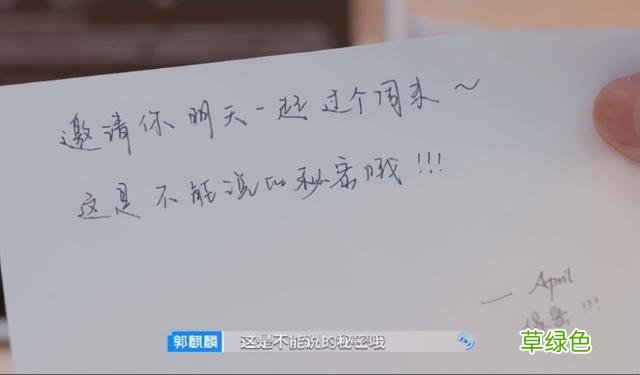 邀请你明天一起过个周末~
这是不能说的秘密哦!!!
— April
保密!!!
郭麒麟 这是不能说的秘密哦
草绿色